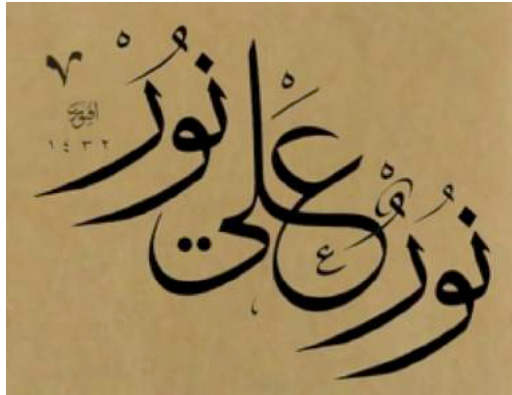 نُور علي نُور
١٤٣٢